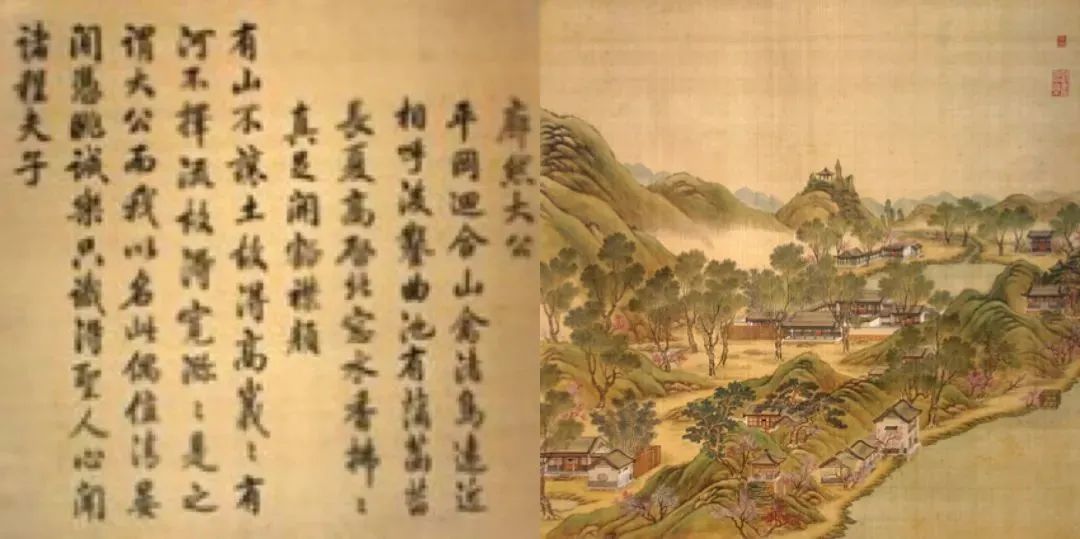 廓然大公
平岡迴合山禽渚鳥遠近
相呼後鑿曲池有蒲菡萏
長夏高啓北窓水香拂〻
真足開豁襟顏
有山不讓土故得高峩〻有
河不擇流故得寬瀰〻是之
謂大公而我以名此偶值清晏
閒憑眺誠樂只識得聖人心聞
諸程夫子